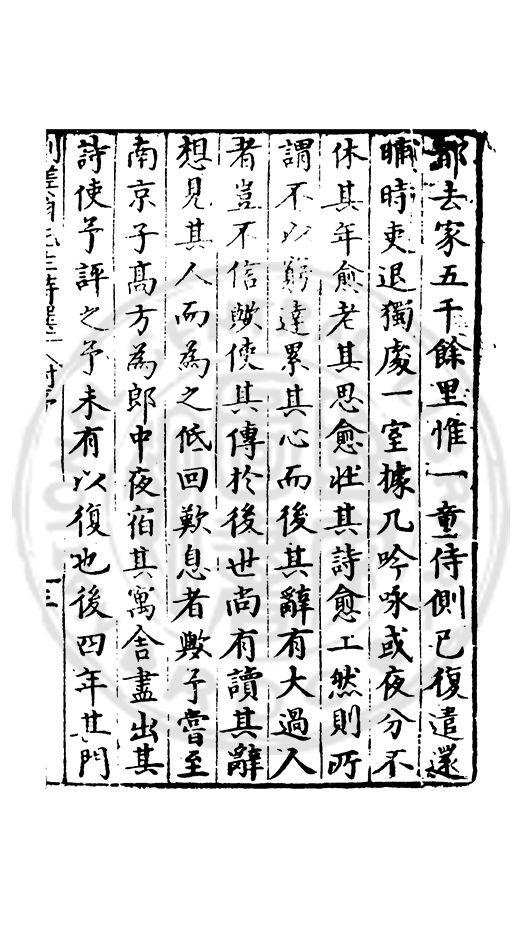 部去家五千餘里惟一童侍側已復遣還
晡時吏退獨處一室據几吟咏或夜分不
休其年愈老其思愈壯其詩愈工然則所
謂不以窮達累其心而後其辭有大過人
者豈不信歟使其傳於後世尚有讀其辭
想見其人而為之低回歎息者歟予嘗至
南京子高方為郎中夜宿其寓舍盡出其
詩使予評之予未有以復也後四年其門
三